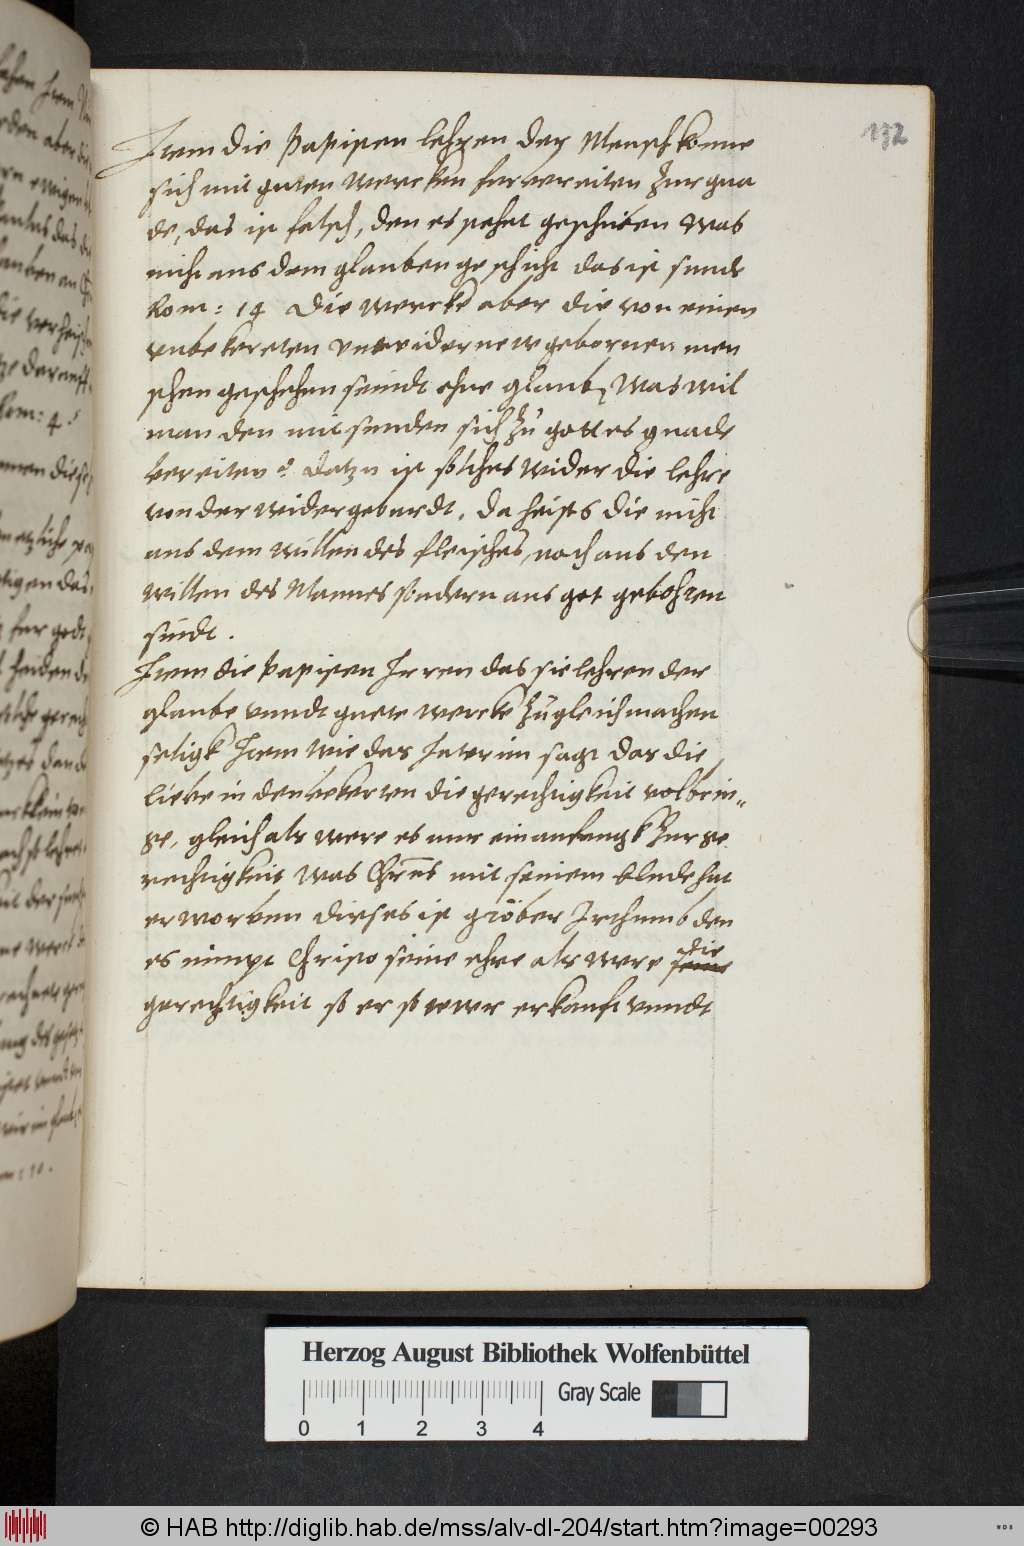 132
Item die Papisten lehren der Mensch konne
sich mit guten wercken furbereiten zur gna
de, das ist falsch, den es stehet geschriben Was
nicht aus dem glauben geschicht das ist sunde
Rom: 14 Die wercke aber die von einen
unbekereten unwidernewgebornen men
schen geschehen seindt ohne glaub, Was wil
man den mit sunden sich zu gottes gnade
bereiten? Datzu ist solches wider die lehre
von der widergeburdt, da heists die nicht
aus dem willen des fleisches, noch aus den
willen des Mannes sondern aus got gebohren
sindt.
Item die Papisten Irren das sie lehren der
glaube vnndt guete wercke zugleich machen
seligk Item Wie das Interim sagt das die
liebe in den bekerten die gerechtigkeit volbrin„
ge, gleich als were es nur ein anfangk zur ge
rechtigkeit was Christus mit seinem blude hat
erworben dieses ist gröber Irthumb den
es nimpt Christo seine ehre als were die
gerechtigkeit so er so tewr erkauft vnndt
Herzog August Bibliothek Wolfenbüttel
Gray Scale
0 1 2 3 4
© HAB http://diglib.hab.de/mss/alv-dl-204/start.htm?image=00293